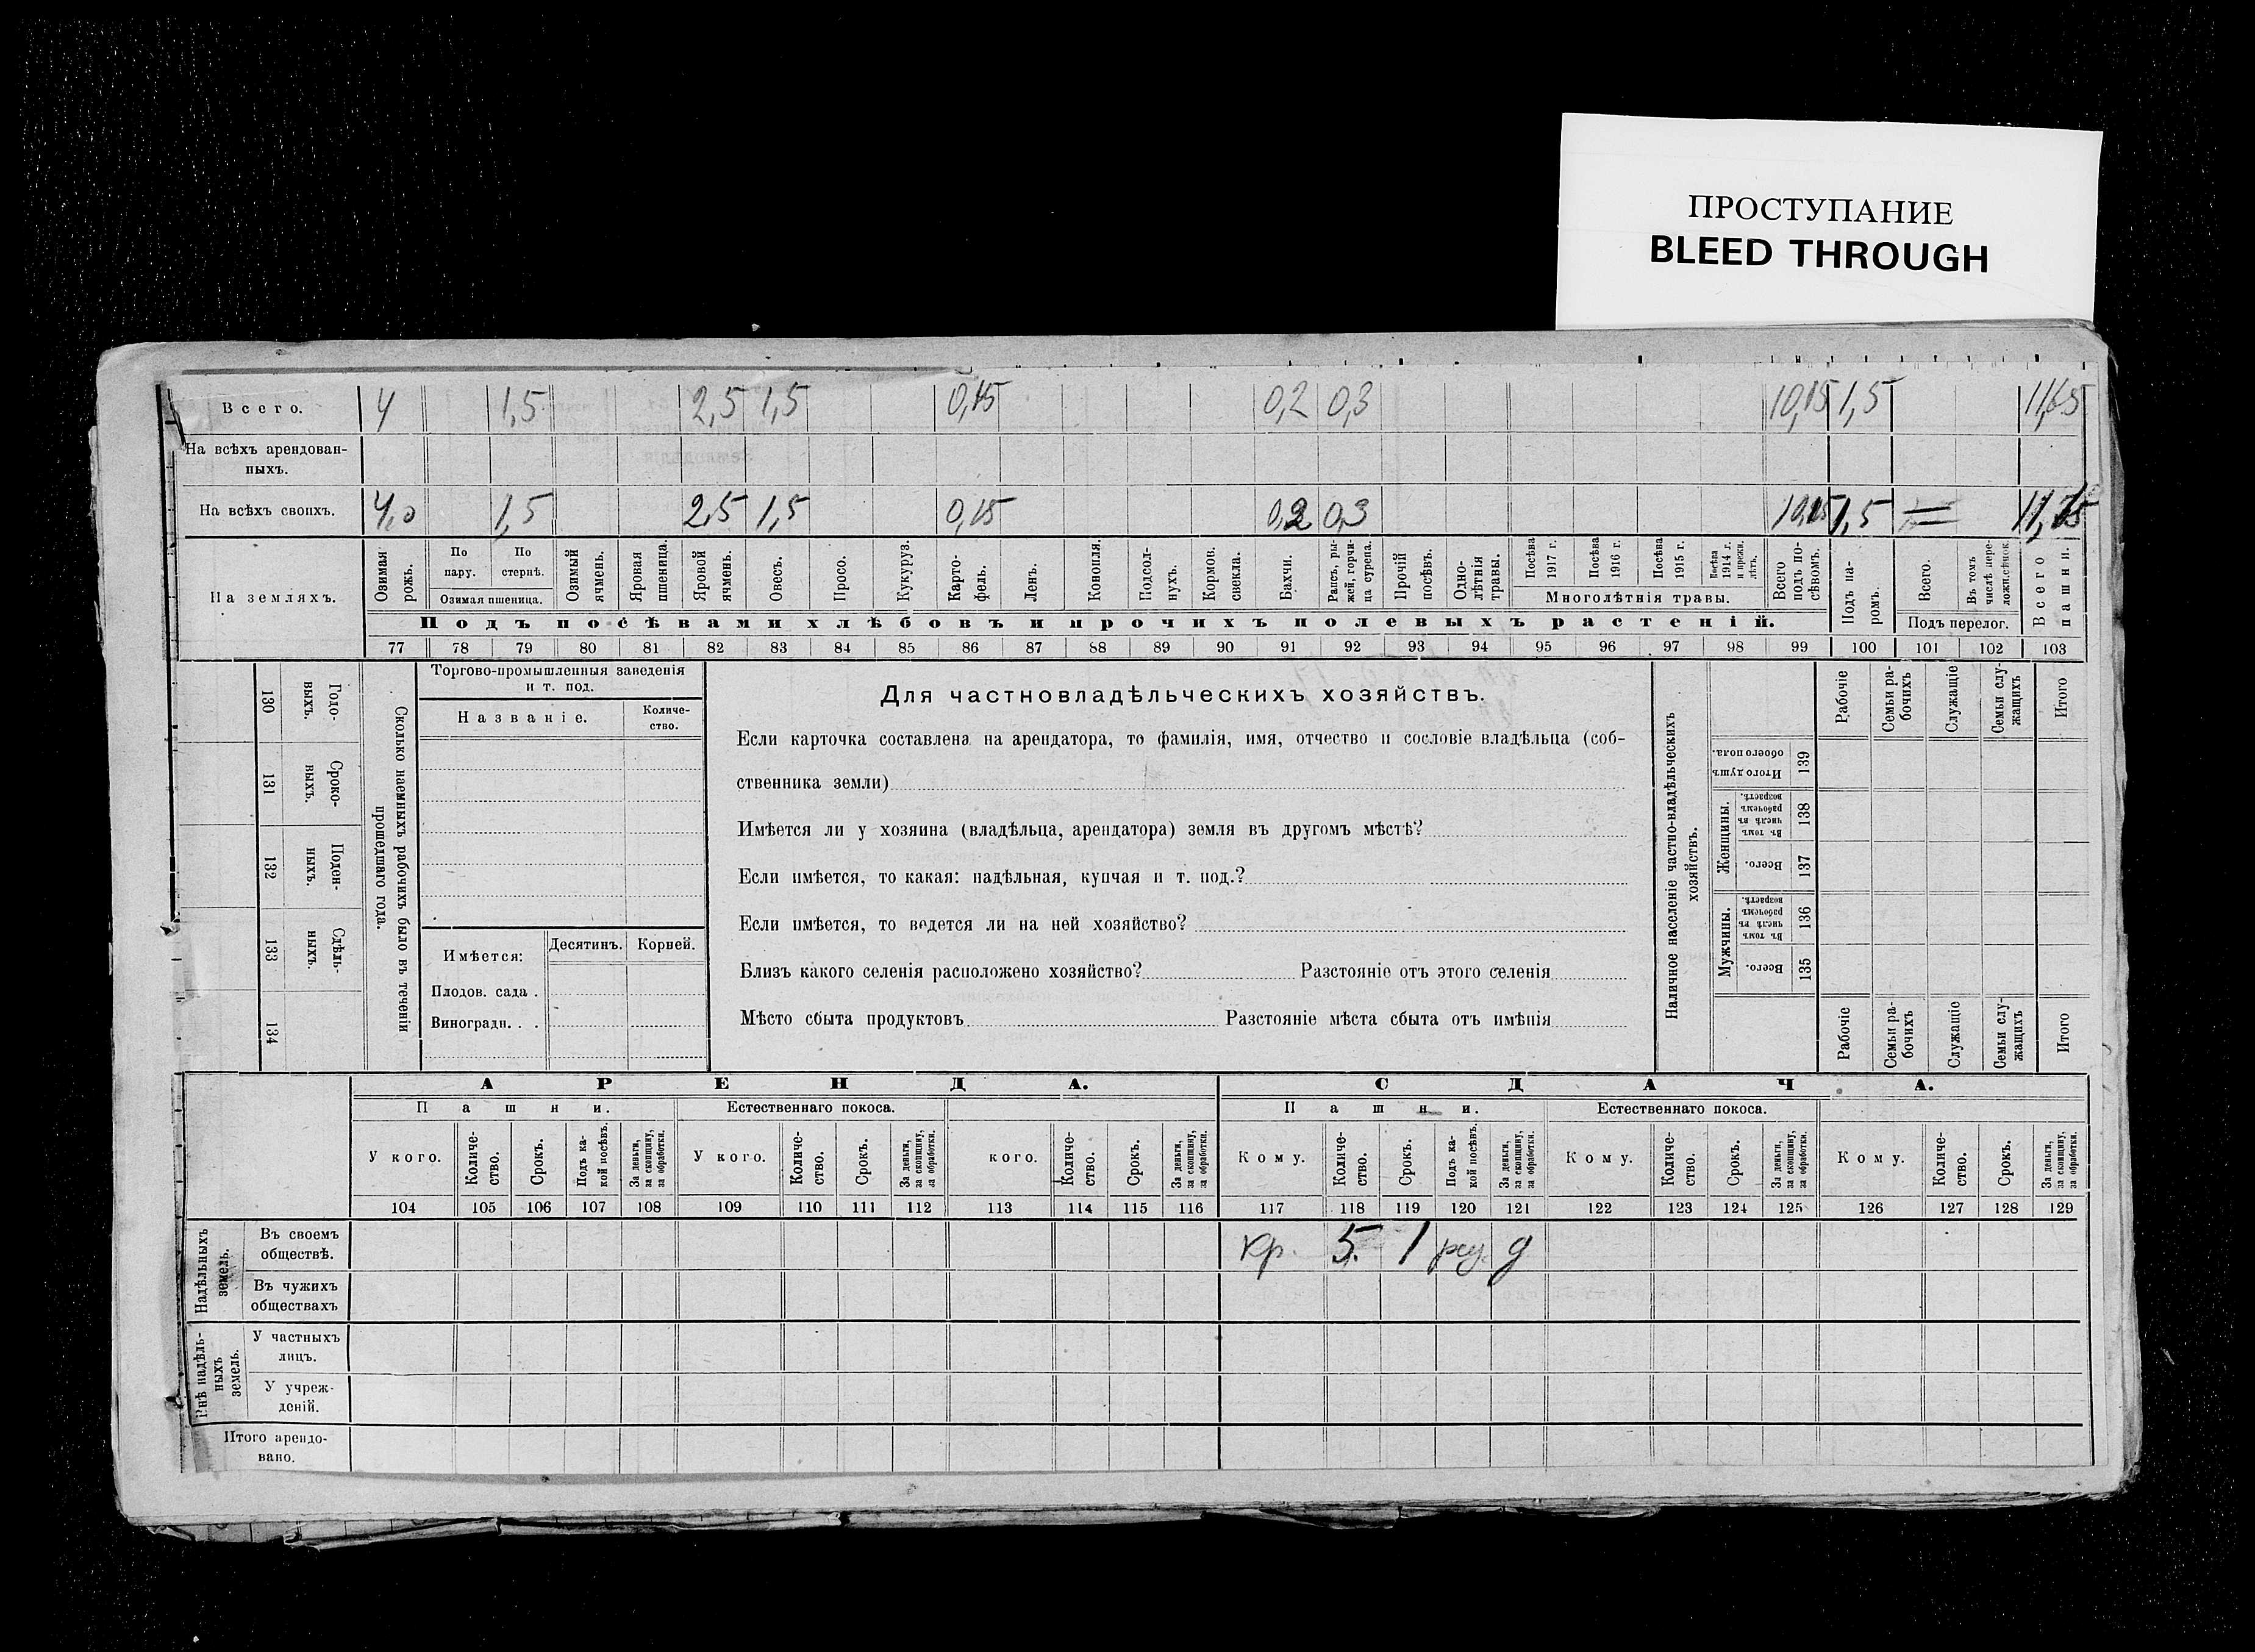 ПРОСТУПАНИЕ
BLEED THROUGH
Всего. 4 1,5 2,5 1,5 0,15 0,2 0,3 10,15 1,5 11,65
На всѣхъ арендован-
ныхъ.
На всѣхъ своихъ. 4,0 1,5 2,5 1,5 0,15 0,2 0,3 10,15 1,5
На земляхъ.
Озимая рожь.
По пару.
По стернѣ.
Озимая пшеница.
Озимый ячмень.
Яровая пшеница.
Яровой ячмень.
Овесъ.
Просо.
Кукуруз.
Карто-
фель.
Ленъ.
Конопля.
Подсол-
нухъ.
Кормов. свекла.
Бахчи.
Рапсъ, ры-
жей, горчи-
ца сурепа.
Прочій посѣвъ.
Одно-
лѣтнія травы.
Посѣва 1917 г.
Посѣва 1916 г.
Посѣва 1915 г.
Посѣва 1914 г. и прежн. лѣтъ.
Многолѣтнія травы.
Всего подъ по-
сѣвомъ.
Подъ па-
ромъ.
Всего.
Въ томъ числѣ пере-
ложн. сѣнок.
Подъ перелог.
Всего пашни.
Подъ посѣвами хлѣбовъ и прочихъ полевыхъ растеній.
77 78 79 80 81 82 83 84 85 86 87 88 89 90 91 92 93 94 95 96 97 98 99 100 101 102 103
130 Годо-
выхъ.
131 Сроко-
выхъ.
132 Поден-
ныхъ.
133 Сдѣль-
ныхъ.
134
Сколько наемныхъ рабочихъ было въ теченіи
прошедшаго года.
Торгово-промышленныя заведенія
и т. под.
Названіе.
Количе-
ство.
Имѣется: Десятинъ. Корней.
Плодов. сада .
Виноградн. . .
Для частновладѣльческихъ хозяйствъ.
Если карточка составлена на арендатора, то фамилія, имя, отчество и сословіе владѣльца (соб-
ственника земли)
Имѣется ли у хозяина (владѣльца, арендатора) земля въ другомъ мѣстѣ?
Если имѣется, то какая: надѣльная, купчая и т. под.?
Если имѣется, то ведется ли на ней хозяйство?
Близъ какого селенія расположено хозяйство? Разстояніе отъ этого селенія
Мѣсто сбыта продуктовъ Разстояніе мѣста сбыта отъ имѣнія
Наличное населеніе частно-владѣльческихъ
хозяйствъ.
Рабочіе
Семьи ра-
бочихъ
Служащіе
Семьи слу-
жащихъ
Итого
Итого душъ обоего пола. 139
Женщины.
Въ томъ числѣ въ рабочемъ возрастѣ. 138
Всего. 137
Мужчины.
Въ томъ числѣ въ рабочемъ возрастѣ. 136
Всего. 135
Рабочіе
Семьи ра-
бочихъ
Служащіе
Семьи слу-
жащихъ
Итого
АРЕНДА. СДАЧА.
Пашни. Естественнаго покоса. Пашни. Естественнаго покоса.
У кого.
Количе-
ство.
Срокъ.
Подъ ка-
кой посѣвъ.
За деньги, за скопщину, за обработки.
У кого.
Количе-
ство.
Срокъ.
За деньги, за скопщину, за обработки.
кого.
Количе-
ство.
Срокъ.
За деньги, за скопщину, за обработки.
Кому.
Количе-
ство.
Срокъ.
Подъ ка-
кой посѣвъ.
За деньги, за скопщину, за обработки.
Кому.
Количе-
ство.
Срокъ.
За деньги, за скопщину, за обработки.
Кому.
Количе-
ство.
Срокъ.
За деньги, за скопщину, за обработки.
104 105 106 107 108 109 110 111 112 113 114 115 116 117 118 119 120 121 122 123 124 125 126 127 128 129
Надѣльныхъ
земель.
Въ своемъ
обществѣ.
кр. 5. 1 д
Въ чужихъ
обществахъ
Внѣ надѣль-
ныхъ
земель.
У частныхъ
лицъ.
У учреж-
деній.
Итого арендо-
вано.